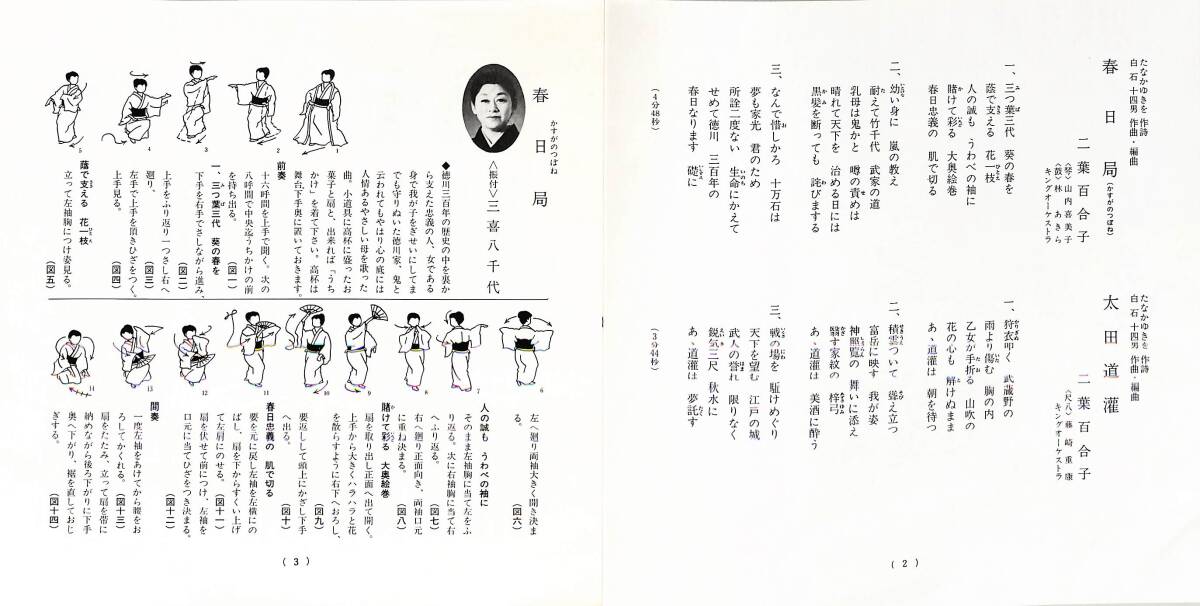 たなかゆきを 作詩
白石十四男 作曲・編曲
春日局(かすがのつぼね)
二葉百合子
〈琴〉山内喜美子
〈鼓〉林 あきら
キングオーケストラ
一、三つ葉三代 葵の春を
蔭で支える 花一枝
人の誠も うわべの袖に
賭けて彩る 大奥絵巻
春日忠義の 肌で切る
二、幼い身に 嵐の教え
耐えて竹千代 武家の道
乳母は鬼かと 噂の責めは
晴れて天下を 治める日には
黒髪を断っても 詫びまする
三、なんで惜しかろ 十万石は
夢も家光 君のため
所詮二度ない 生命にかえて
せめて徳川 三百年の
春日なります 礎に
(4分48秒)
たなかゆきを 作詩
白石十四男 作曲・編曲
太田道灌
二葉百合子
〈尺八〉藤崎重康
キングオーケストラ
一、狩衣叩く 武蔵野の
雨より傷む 胸の内
乙女が手折る 山吹の
花の心も 解けぬまま
あゝ道灌は 朝を待つ
二、積雲ついて 聳え立つ
富岳に映す 我が姿
神照覧の 舞いに添え
翳す家紋の 梓弓
あゝ道灌は 美酒に酔う
三、戦の場を 駈けめぐり
天下を望む 江戸の城
武人の誉れ 限りなく
鋭気三尺 秋水に
あゝ道灌は 夢託す
(3分44秒)
(2)
かすがのつぼね
春日局
〈振付〉三喜八千代
◆徳川三百年の歴史の中を裏か
ら支えた忠義の人、女である
身で我が子をぎせいにしてま
でも守りぬいた徳川家、鬼と
云われてもやはり心の底には
人情あるやさしい母を歌った
曲、小道具に高杯に盛ったお
菓子と扇と、出来れば「うち
かけ」を着て下さい。高杯は
舞台下手奥に置いておきます。
前奏
十六呼間を上手で開く。次の
八呼間で中央迄うちかけの前
を持ち出る。 (図一)
一、三つ葉三代 葵の春を
下手を右手でさしながら進み、
(図二)
上手をふり返り一つさし右へ
廻り、 (図三)
左手で上手を頂きひざをつく。
上手見る。 (図四)
蔭で支える 花一枝
立って左袖胸につけ姿見る。
(図五)
1
2
3
4
5
左へ廻り両袖大きく開き決ま
る。 (図六)
人の誠も うわべの袖に
そのまま左袖胸に当て左をふ
り返る。次に右袖胸に当て右
へふり返る。 (図七)
右へ廻り正面向き、両袖口元
に重ね決まる。 (図八)
賭けて彩る 大奥絵巻
扇を取り出し正面へ出て開く。
(図九)
上手から大きくハラハラと花
を散らすように右下へおろし、
要返しして頭上にかざし下手
へ出る。 (図十)
春日忠義の 肌で切る
要を元に戻し左袖を左横にの
ばし、扇を下からすくい上げ
て左肩にのせる。 (図十一)
扇を伏せて前につけ、左袖を
口元に当てひざをつき決まる。
(図十二)
間奏
一度左袖をあけてから腰をお
ろしてかくれる。 (図十三)
扇をたたみ、立って扇を帯に
納めながら後ろ下がりに下手
奥へ下がり、裾を直しておじ
ぎする。 (図十四)
6
7
8
9
10
11
12
13
14
(3)